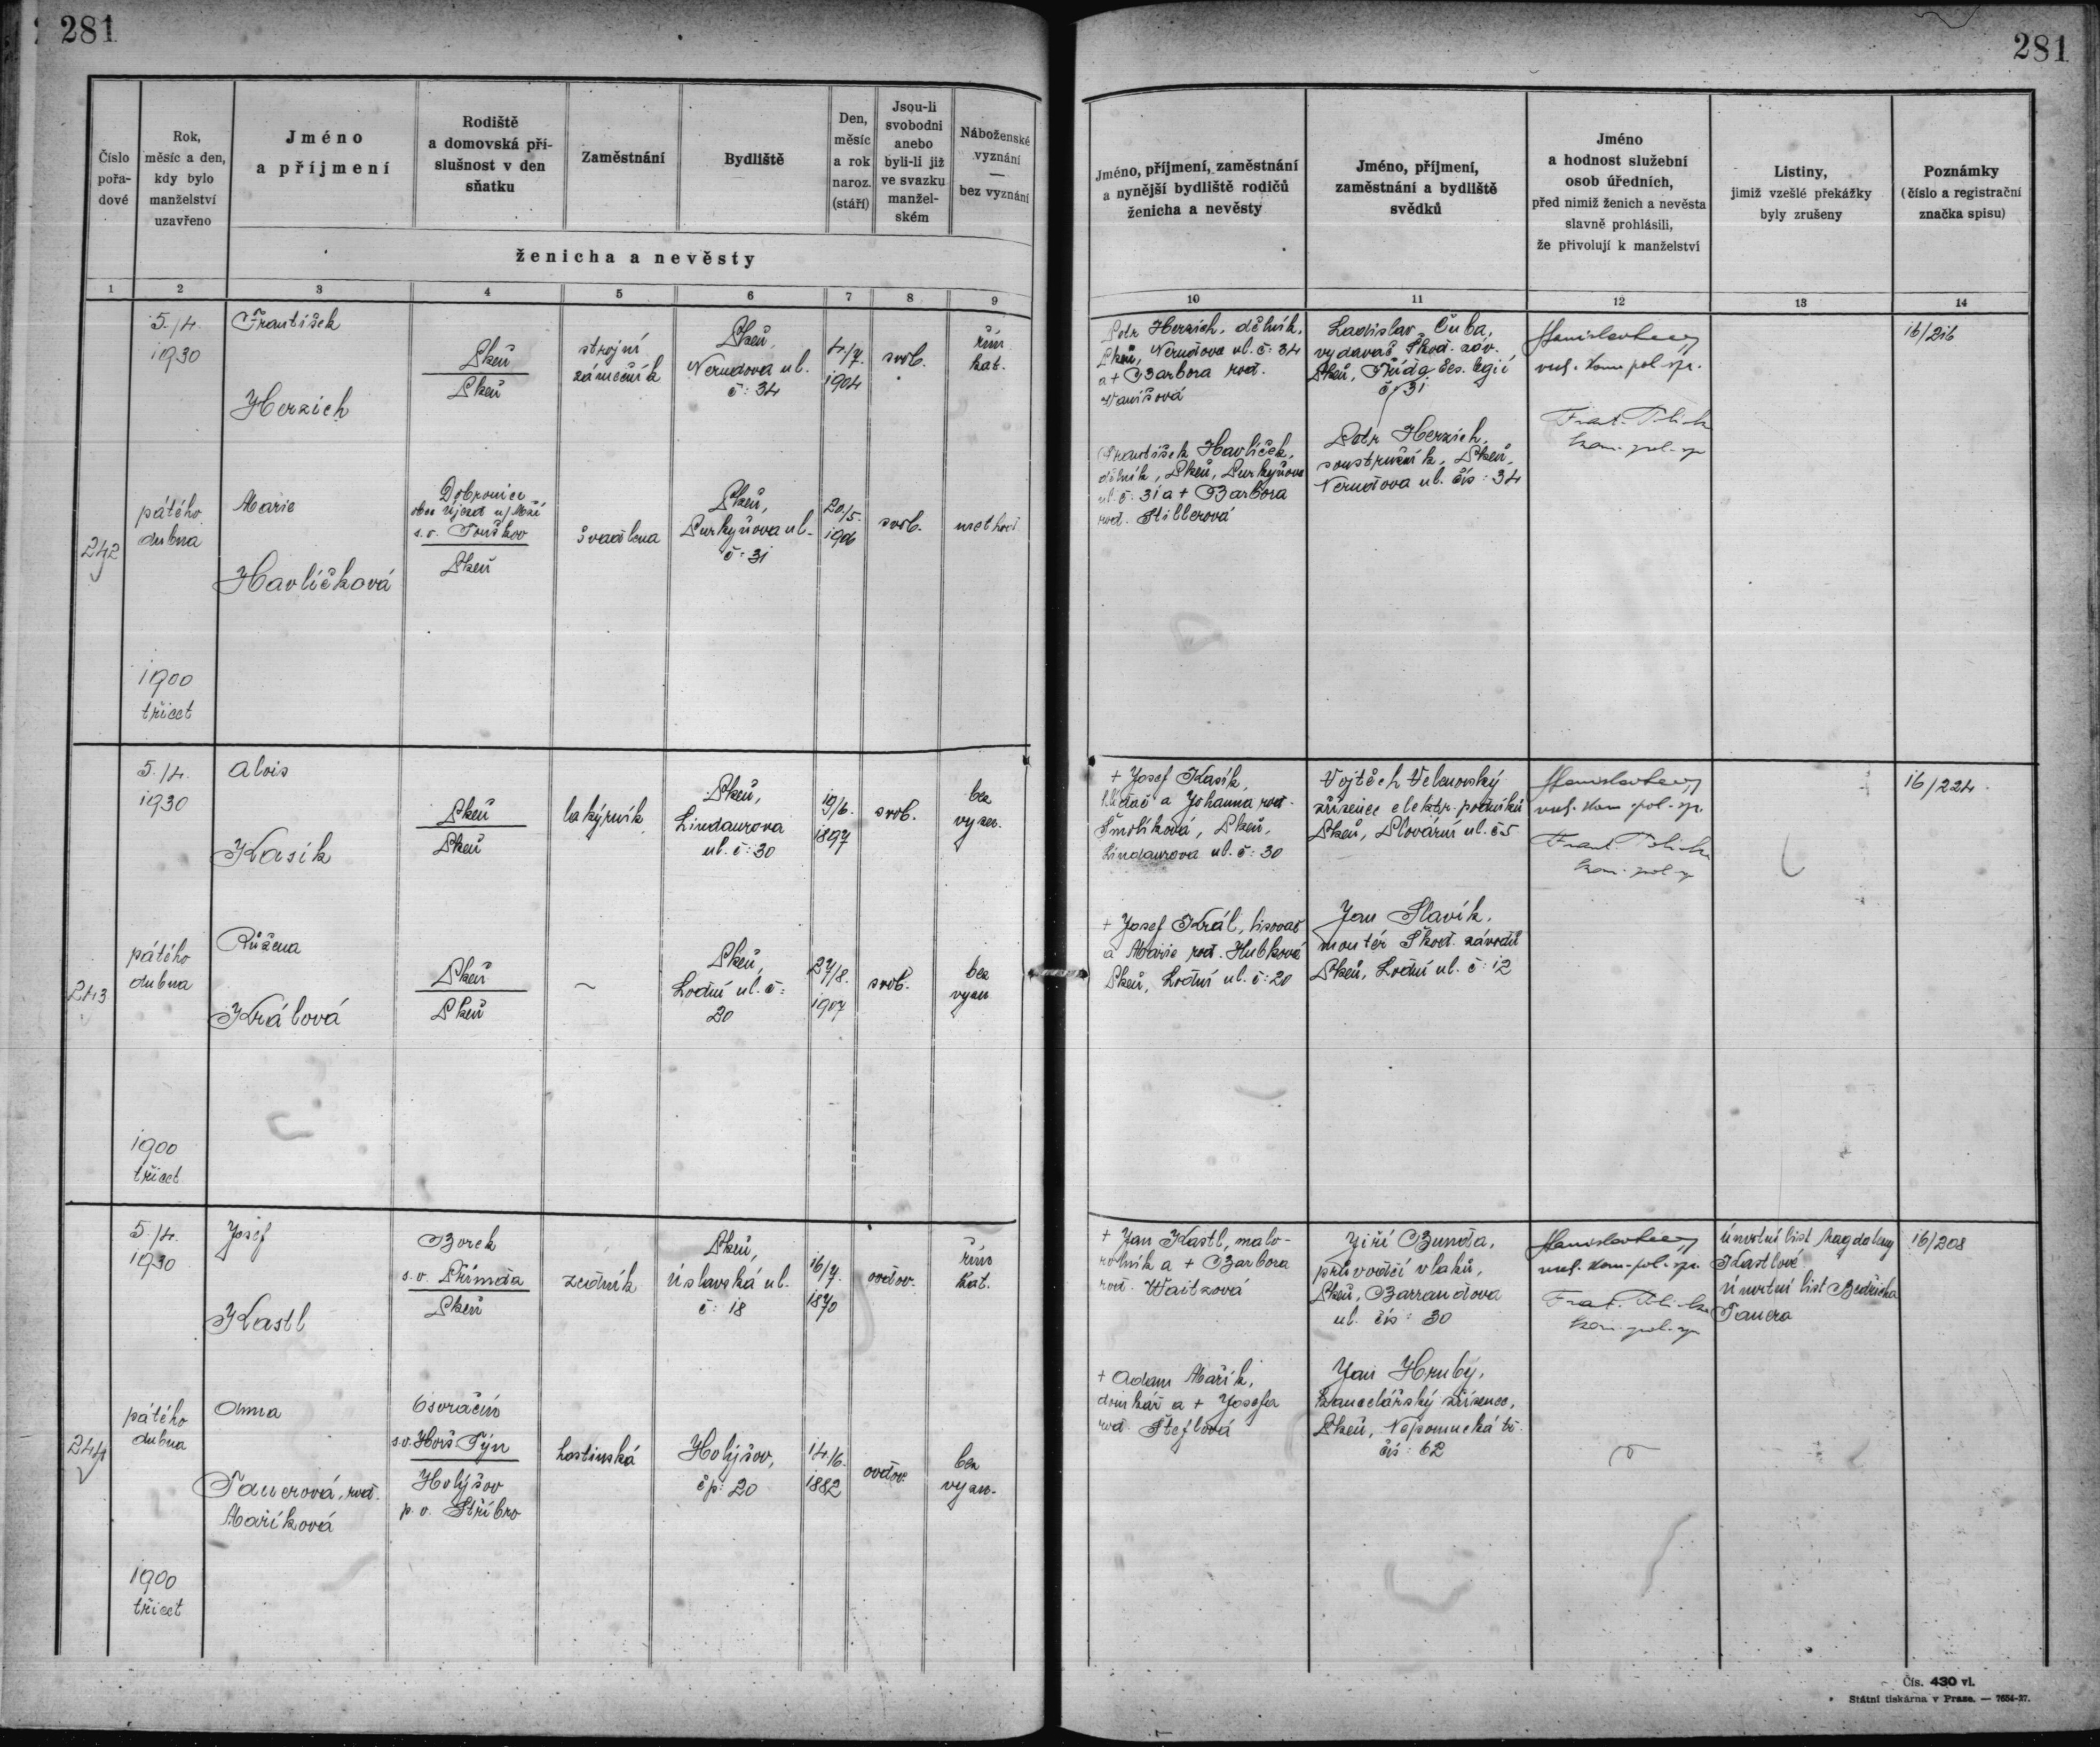 281
281
Číslo
pořa-
dové
Rok,
měsíc a den,
kdy bylo
manželství
uzavřeno
Jméno
a příjmení
Rodiště
a domovská pří-
slušnost v den
sňatku
Zaměstnání
Bydliště
Den,
měsíc
a rok
naroz.
(stáří)
Jsou-li
svobodni
anebo
byli-li již
ve svazku
manžel-
ském
Náboženské
vyznání
—
bez vyznání
ženicha a nevěsty
Jméno, příjmení, zaměstnání
a nynější bydliště rodičů
ženicha a nevěsty
Jméno, příjmení,
zaměstnání a bydliště
svědků
Jméno
a hodnost služební
osob úředních,
před nimiž ženich a nevěsta
slavně prohlásili,
že přivolují k manželství
Listiny,
jimiž vzešlé překážky
byly zrušeny
Poznámky
(číslo a registrační
značka spisu)
1 2 3 4 5 6 7 8 9 10 11 12 13 14
242
5./4.
1930
pátého
dubna
1900
třicet
František
Herzich
Plzeň
Plzeň
strojní
zámečník
Plzeň,
Nerudova ul.
č: 34
4/7.
1904
svob.
řím
kat.
Petr Herzich, dělník,
Plzeň, Nerudova ul. č: 34
a + Barbora roz.
Ladislav Čuba,
vydavač Škod. záv.
Plzeň, Třída čes. legií
č 31
vrch. kom. pol. spr.
kom. pol. sp
16/216
Marie
Havlíčková
Dobronice
obec Újezd n/Mží
s. o. Touškov
Plzeň
švadlena
Plzeň,
Purkyňova ul.
č: 31
20/5.
1906
svob.
method.
František Havlíček,
dělník, Plzeň, Purkyňova
ul. č: 31 a + Barbora
roz. Stillerová
Petr Herzich,
soustružník, Plzeň,
Nerudova ul. čís: 34
243
5./4.
1930
pátého
dubna
1900
třicet
Alois
Kasík
Plzeň
Plzeň
lakýrník
Plzeň,
Lindaurova
ul. č: 30
19/6.
1897
svob.
bez
vyzn.
+ Josef Kasík,
hlídač a Johanna roz.
Smolíková, Plzeň,
Lindaurova ul. č: 30
Vojtěch Velenovský
zřízenec elektr. podniků
Plzeň, Plovární ul. č 5
vrch. kom. pol. sp.
kom. pol. sp
16/224
Růžena
Králová
Plzeň
Plzeň
~
Plzeň,
Lodní ul. č:
20
27/8.
1907
svob.
bez
vyzn
+ Josef Král, lisovač
a Marie roz. Hubková
Plzeň, Lodní ul. č: 20
Jan Slavík,
montér Škod. závodů
Plzeň, Lodní ul. č: 12
244
5./4.
1930
pátého
dubna
1900
třicet
Josef
Kastl
Borek
s. o. Přimda
Plzeň
zedník
Plzeň,
Úslavská ul.
č: 18
16/7.
1870
ovdov.
řím
kat.
+ Jan Kastl, malo-
rolník a + Barbora
roz. Waitzová
Jiří Bunda,
průvodčí vlaků,
Plzeň, Barrandova
ul. čís: 30
vrch. kom. pol. sp.
kom. pol. sp
Úmrtní list Magdaleny
Kastlové
Úmrtní list Bedřicha
Tauera
16/208
Anna
Tauerová, roz.
Maříková
Osvračín
s. o. Horš. Týn
Holýšov
p. o. Stříbro
hostinská
Holýšov,
čp: 20
14/6.
1882
ovdov.
bez
vyzn.
+ Adam Mařík,
domkář a + Josefa
roz. Šteflová
Jan Hrubý,
kancelářský zřízenec,
Plzeň, Nepomucká tř.
čís: 62
Čís. 430 vl.
Státní tiskárna v Praze. — 7654-27.